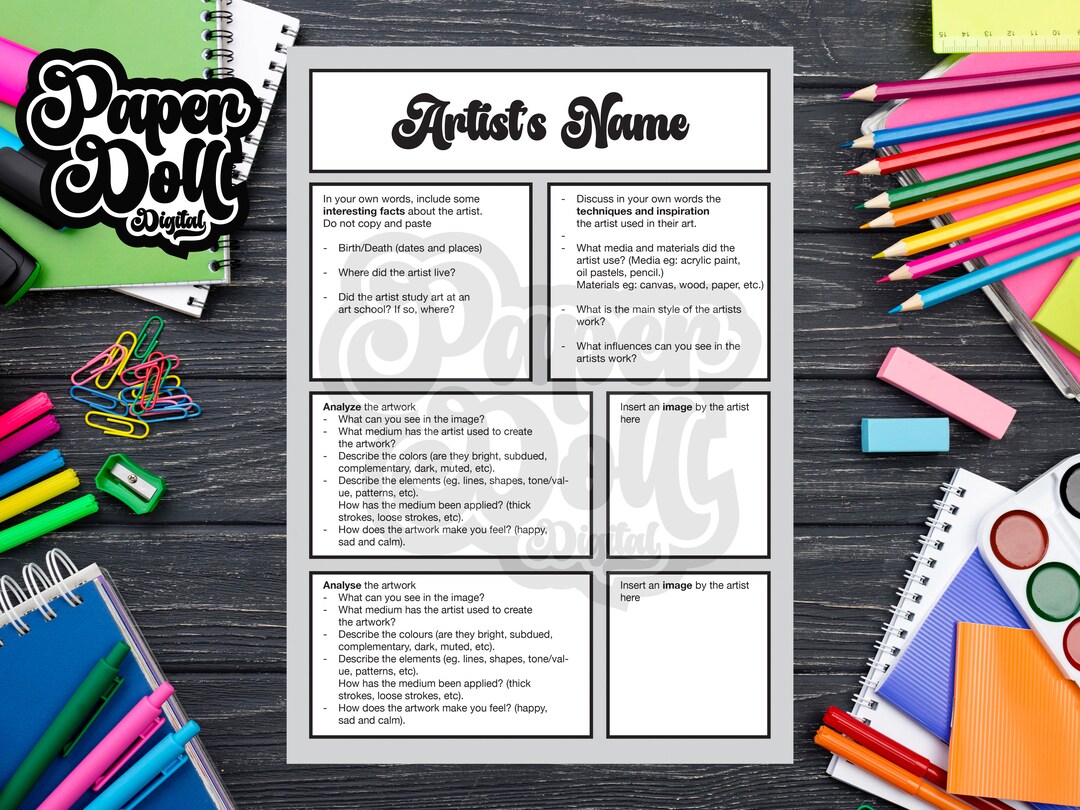 Paper
Doll
Digital
Artist's Name
In your own words, include some
interesting facts about the artist.
Do not copy and paste
- Birth/Death (dates and places)
- Where did the artist live?
- Did the artist study art at an
art school? If so, where?
- Discuss in your own words the
techniques and inspiration
the artist used in their art.
-
- What media and materials did the
artist use? (Media eg: acrylic paint,
oil pastels, pencil.)
Materials eg: canvas, wood, paper, etc.)
- What is the main style of the artists
work?
- What influences can you see in the
artists work?
Analyze the artwork
- What can you see in the image?
- What medium has the artist used to create
the artwork?
- Describe the colors (are they bright, subdued,
complementary, dark, muted, etc).
- Describe the elements (eg. lines, shapes, tone/val-
ue, patterns, etc).
How has the medium been applied? (thick
strokes, loose strokes, etc).
- How does the artwork make you feel? (happy,
sad and calm).
Insert an image by the artist
here
Analyse the artwork
- What can you see in the image?
- What medium has the artist used to create
the artwork?
- Describe the colours (are they bright, subdued,
complementary, dark, muted, etc).
- Describe the elements (eg. lines, shapes, tone/val-
ue, patterns, etc).
How has the medium been applied? (thick
strokes, loose strokes, etc).
- How does the artwork make you feel? (happy,
sad and calm).
Insert an image by the artist
here
Paper
Doll
Digital
15 14 13 12 11 10